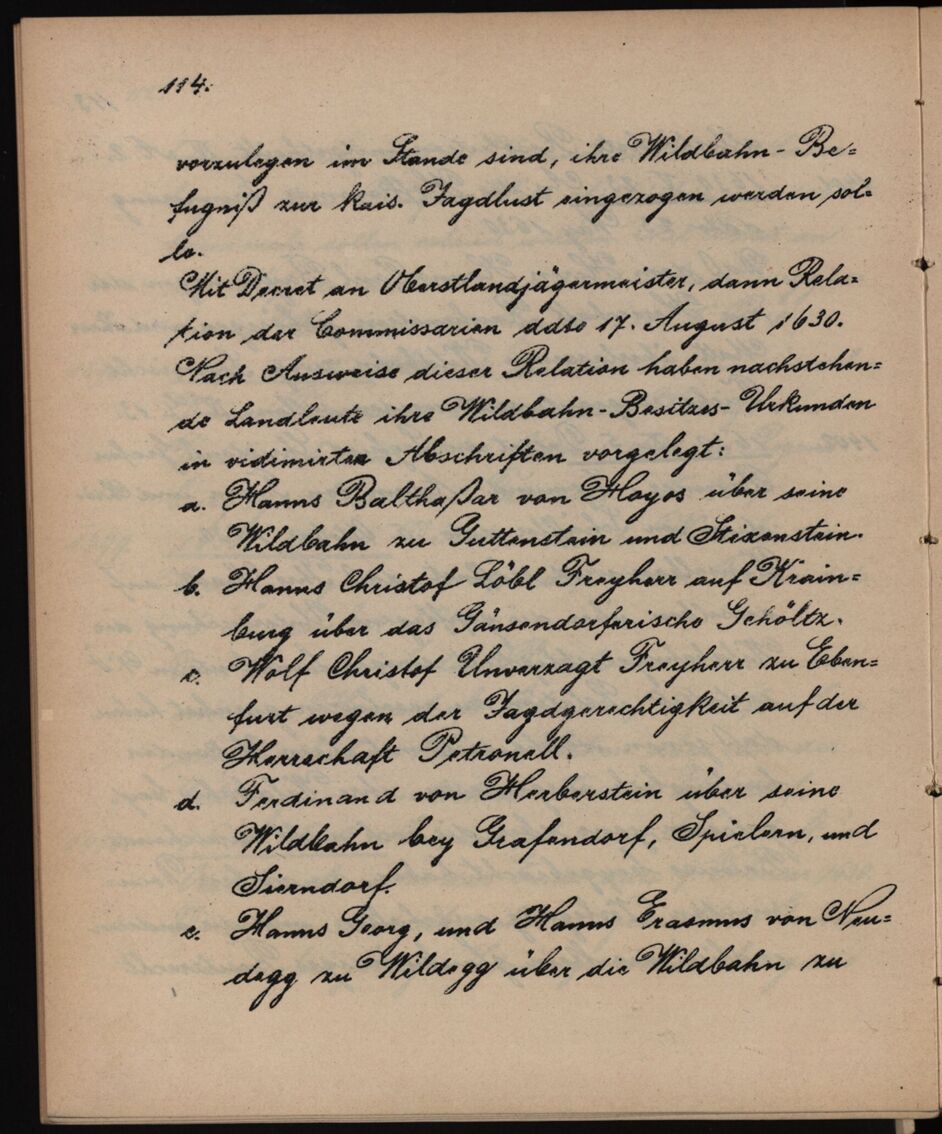 114.
vorzulegen im Stande sind, ihre Wildbahn-Be=
fugniß zur kais. Jagdlust eingezogen werden sol=
le.
Mit Decret an Oberstlandjägermeister, dann Rela=
tion der Commissarien ddto 17. August 1630.
Nach Ausweise dieser Relation haben nachstehen=
de Landleute ihre Wildbahn-Besitzes-Urkunden
in vidimirten Abschriften vorgelegt:
a. Hanns Balthaßar von Hoyos über seine
Wildbahn zu Guttenstein und Stixenstein.
b. Hanns Christof Löbl Freyherr auf Krain=
burg über das Gänsendorferische Gehöltz.
c. Wolf Christof Unverzagt Freyherr zu Eben=
furt wegen der Jagdgerechtigkeit auf der
Herrschaft Petronell.
d. Ferdinand von Herberstein über seine
Wildbahn bey Grafendorf, Spielern, und
Sierndorf.
e. Hanns Georg, und Hanns Erasmus von Neu=
degg zu Wildegg über die Wildbahn zu